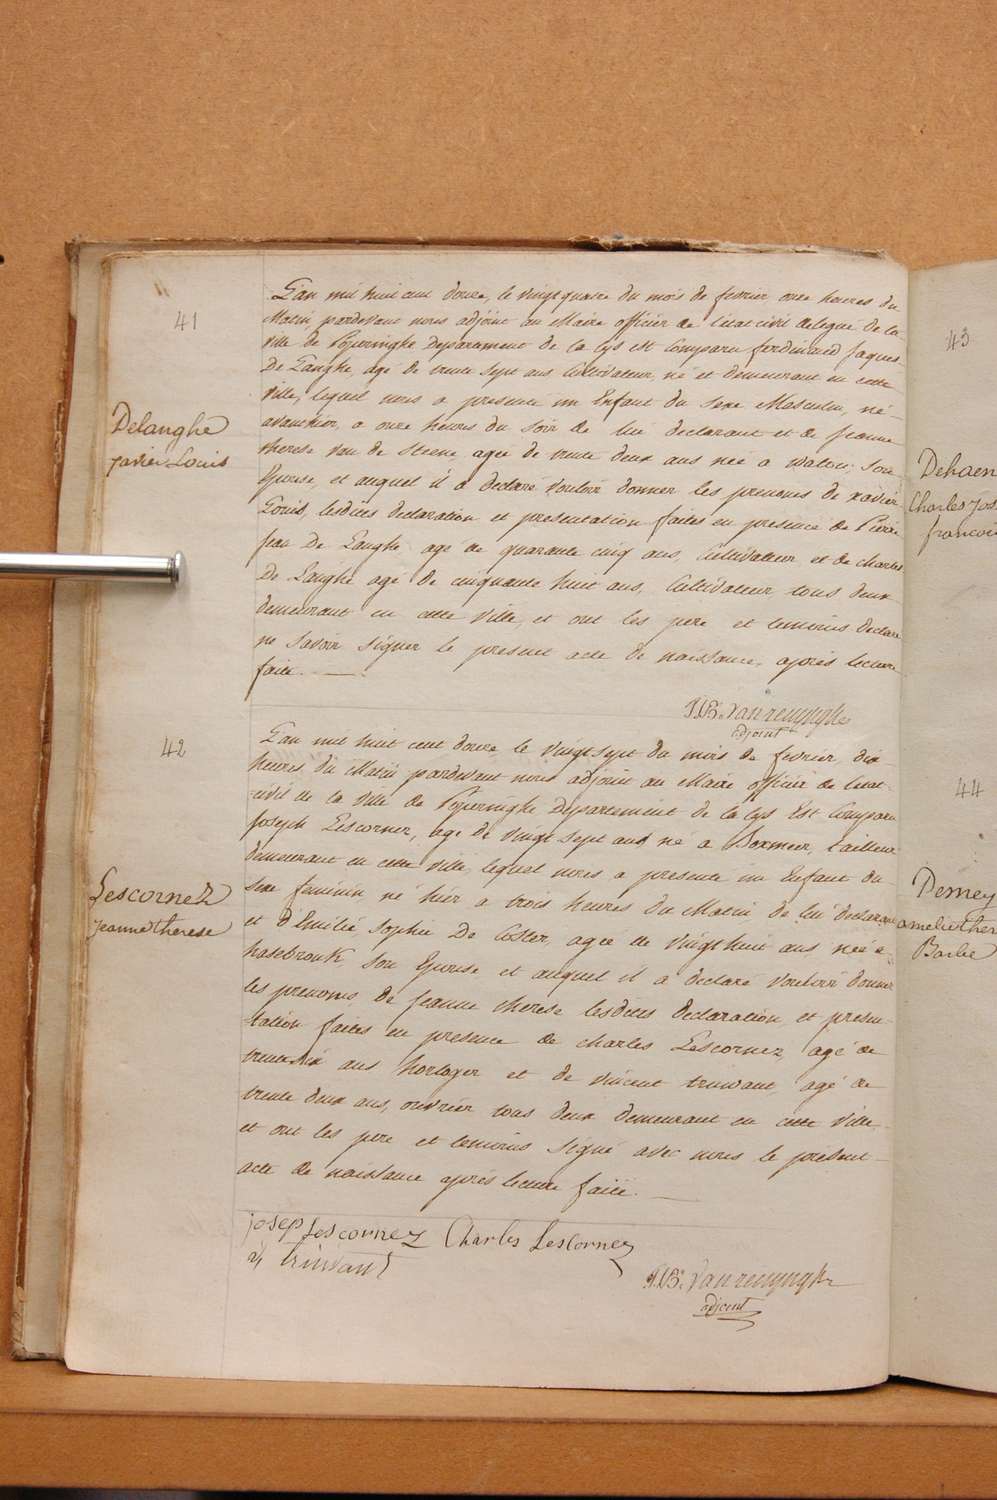 41
Delanghe
xavier Louis
L'an mil huit cent douze, le vingtquatre du mois de fevrier onze heures du
Matin pardevant nous adjoint au Maire officier de l'etat civil delegué de la
ville de Poperinghe departement de la Lys est Comparu ferdinand jaques
De Langhe, agé de trente sept ans Cultivateur, né et demeurant en cette
ville, lequel nous a presenté un Enfant du sexe Masculin, né
avanthier, a onze heures du soir de lui declarant et de jeanne
therese van de Steene, agée de trente deux ans née a watou, son
Epouse, et auquel il a declaré vouloir donner les prenoms de xavier
Louis, lesdites declaration et presentation faites en presence de Pierre
jean De Langhe agé de quarante cinq ans, Cultivateur et de charles
De Langhe agé de cinquante huit ans, Cultivateur tous deux
demeurant en cette ville, et ont les pere et temoins declaré
ne savoir signer le present acte de naissance, après lecture
faite.
P.J.B. Vanrenynghe
adjoint
42
Lescornez
jeanne therese
L'an mil huit cent douze le vingtsept du mois de fevrier, dix
heures du Matin pardevant nous adjoint au Maire officier de l'etat
civil de la ville de Poperinghe departement de la Lys Est Comparu
joseph Lescornez, agé de vingt sept ans né a Boxmeer, tailleur
demeurant en cette ville, lequel nous a presenté un Enfant du
sexe feminin né hier a trois heures du Matin de lui declarant
et d'Emilie Sophie De Coster, agée de vingthuit ans, née a
hasebrouk, son Epouse, et auquel il a declaré vouloir donner
les prenoms de jeanne therese lesdites declaration et presen-
-tation faites en presence de charles Lescornez, agé de
trentesix ans horloger et de vincent truwant, agé de
trente deux ans, ouvrier tous deux demeurant en cette ville,
et ont les pere et temoins signé avec nous le présent
acte de naissance après lecture faite.
josep Lescornez Charles Lescornez
truwant
P.J.B. Vanrenynghe
adjoint
43
Dehaen
Charles Jos
francois
44
Demey
amelie ther
Barbe